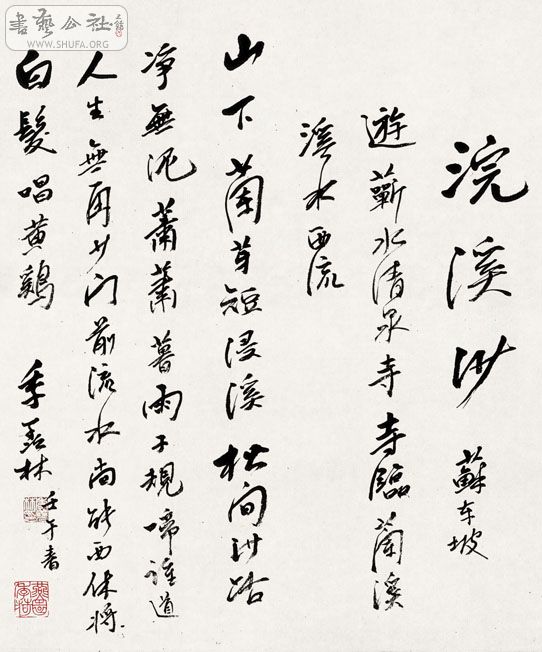 浣溪沙 蘇东坡
遊蘄水清泉寺寺臨蘭溪
溪水西流
山下蘭芽短浸溪松间沙路
净無泥蕭蕭暮雨子規啼誰道
人生無再少门前流水尚能西休将
白髮唱黄鷄 季羡林 壬午書
書藝公社
WWW.SHUFA.ORG